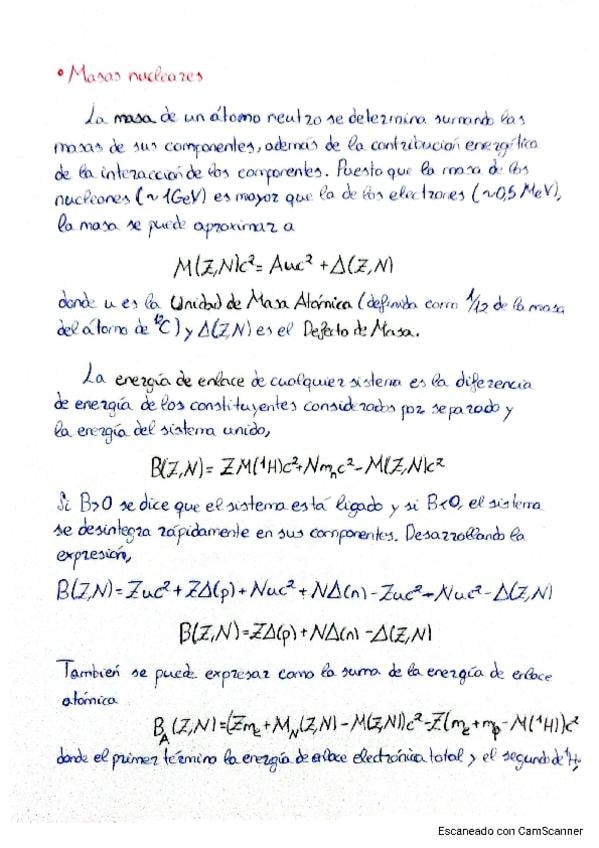 • Masas nucleares
La masa de un átomo neutro se determina sumando las
masas de sus componentes, además de la contribución energética
de la interacción de los componentes. Puesto que la masa de los
nucleones (~1GeV) es mayor que la de los electrones (~0,5 MeV),
la masa se puede aproximar a
M(Z,N)c² = Auc² + Δ(Z,N)
donde u es la Unidad de Masa Atómica (definida como 1/12 de la masa
del átomo de ¹²C) y Δ(Z,N) es el Defecto de Masa.
La energía de enlace de cualquier sistema es la diferencia
de energía de los constituyentes considerados por separado y
la energía del sistema unido,
B(Z,N) = ZM(¹H)c² + Nmₙc² - M(Z,N)c²
Si B>0 se dice que el sistema está ligado y si B<0, el sistema
se desintegra rápidamente en sus componentes. Desarrollando la
expresión,
B(Z,N) = Zuc² + ZΔ(p) + Nuc² + NΔ(n) - Zuc² - Nuc² - Δ(Z,N)
B(Z,N) = ZΔ(p) + NΔ(n) - Δ(Z,N)
También se puede expresar como la suma de la energía de enlace
atómica
B_A(Z,N) = (Zmₑ + M_N(Z,N) - M(Z,N))c² - Z(mₑ + mₚ - M(¹H))c²
donde el primer término la energía de enlace electrónica total y el segundo de ¹H,
Escaneado con CamScanner